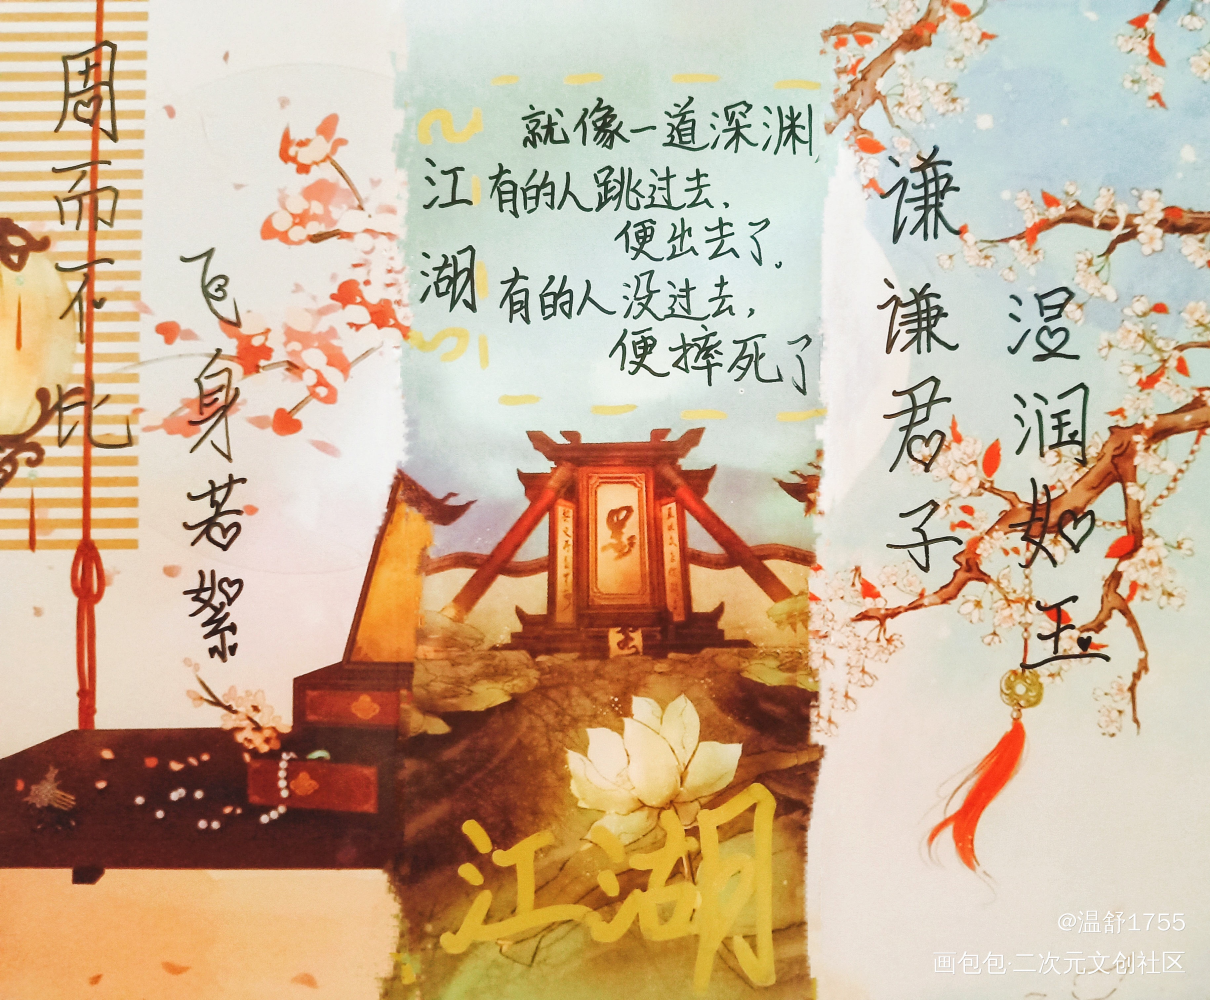 周而不比
飞身若絮
江湖
就像一道深渊,
有的人跳过去,
便出去了。
有的人没过去,
便摔死了
谦谦君子
温润如玉
江湖
@温舒1755
画包包·二次元文创社区